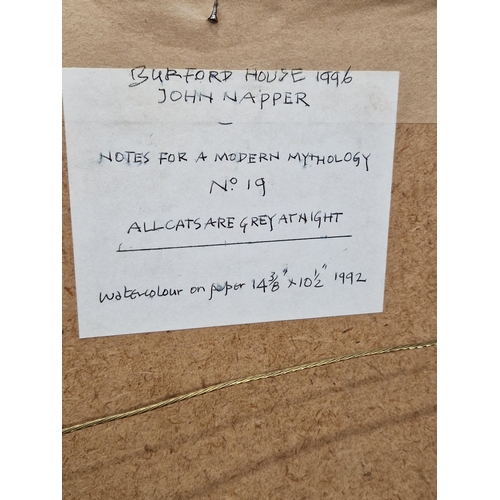 BURFORD HOUSE 1996
JOHN NAPPER
NOTES FOR A MODERN MYTHOLOGY
No 19
ALL CATS ARE GREY AT NIGHT
watercolour on paper 14 3/8" x 10 1/2" 1992